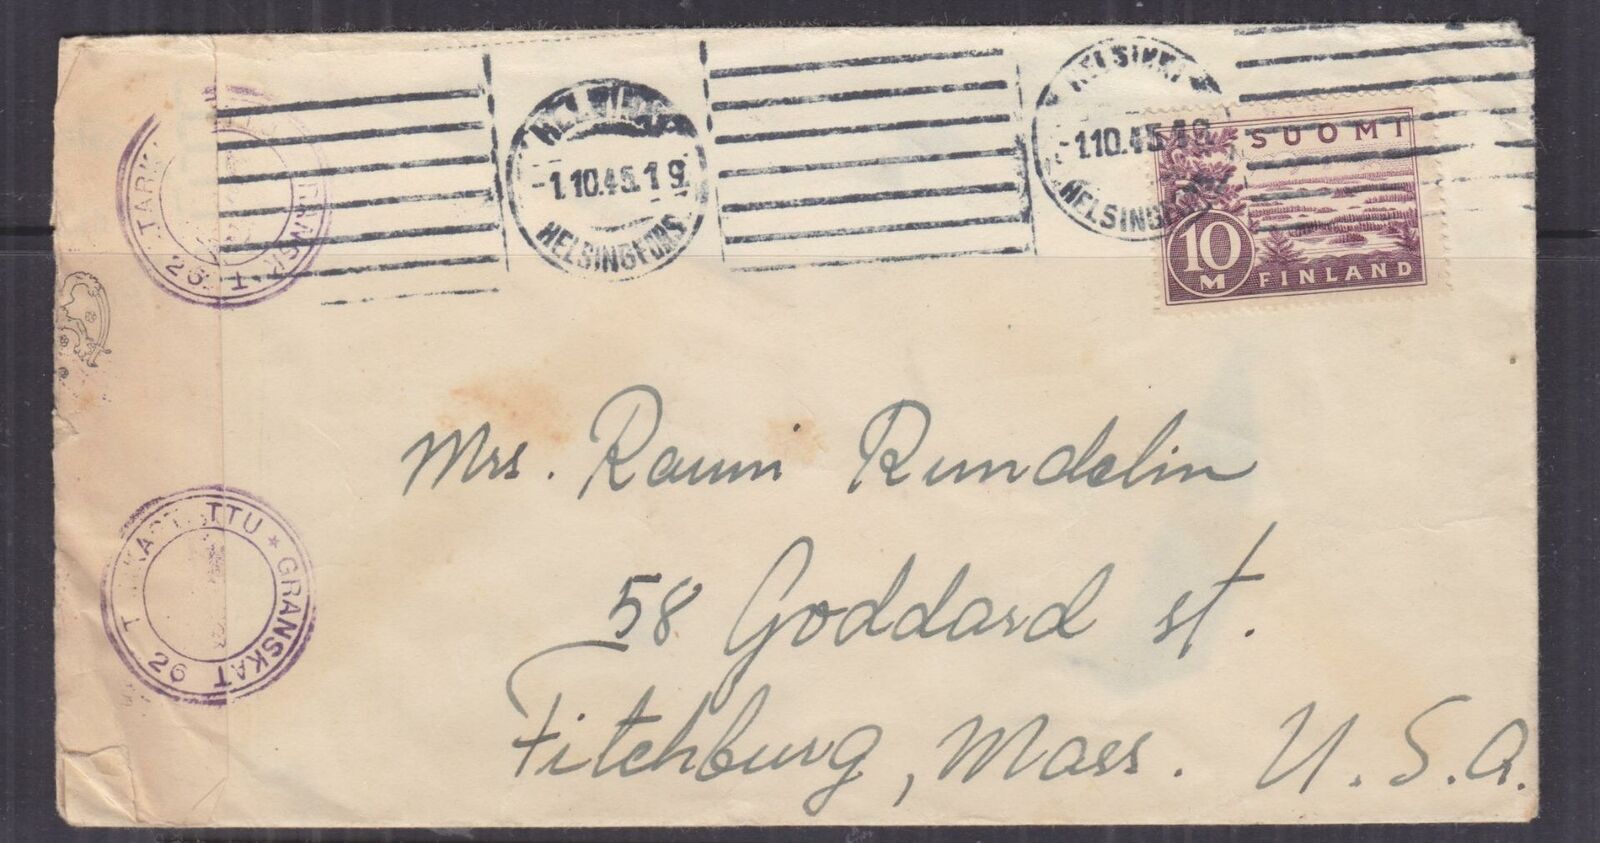 HELSINKI
-1.10.45.19
HELSINGFORS
HELSINKI
-1.10.45.19
HELSINGFORS
SUOMI
10 M
FINLAND
26 T
TTU * GRANSKAT
T 26
Mrs. Rauni Rundelin
58 Goddard st.
Fitchburg, Mass. U.S.A.